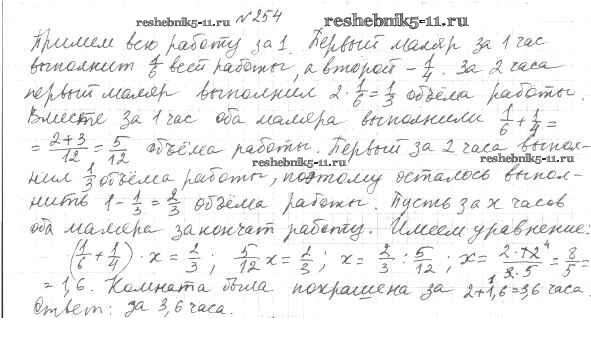 www.reshebnik5-11.ru №254 reshebnik5-11.ru
Примем всю работу за 1. Первый маляр за 1 час
выполнит 1/6 всей работы, а второй – 1/4. За 2 часа
первый маляр выполнил 2·1/6=1/3 объёма работы.
Вместе за 1 час оба маляра выполнили 1/6+1/4=
=2+3/12=5/12 объёма работы. Первый за 2 часа выпол-
www.reshebnik5-11.ru www.reshebnik5-11.ru
нил 1/3 объёма работы, поэтому осталось выпол-
нить 1-1/3=2/3 объёма работы. Пусть за x часов
оба маляра закончат работу. Имеем уравнение:
(1/6+1/4)·x=2/3; 5/12x=2/3; x=2/3:5/12; x=2·12⁴/3·5=8/5=
=1,6. Комната была покрашена за 2+1,6=3,6 часа.
Ответ: за 3,6 часа.